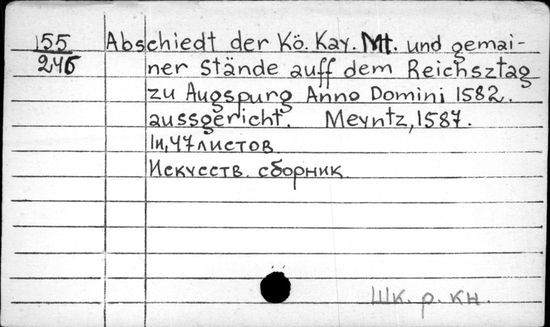 155 Abschiedt der Kö. Kay. Mt. und gemai-
246 ner Stände auff dem Reichsztag
zu Augspurg Anno Domini 1582.
aussgericht. Meyntz, 1587.
1н, 47 листов.
Искусств. сборник
Шк. р. кн.